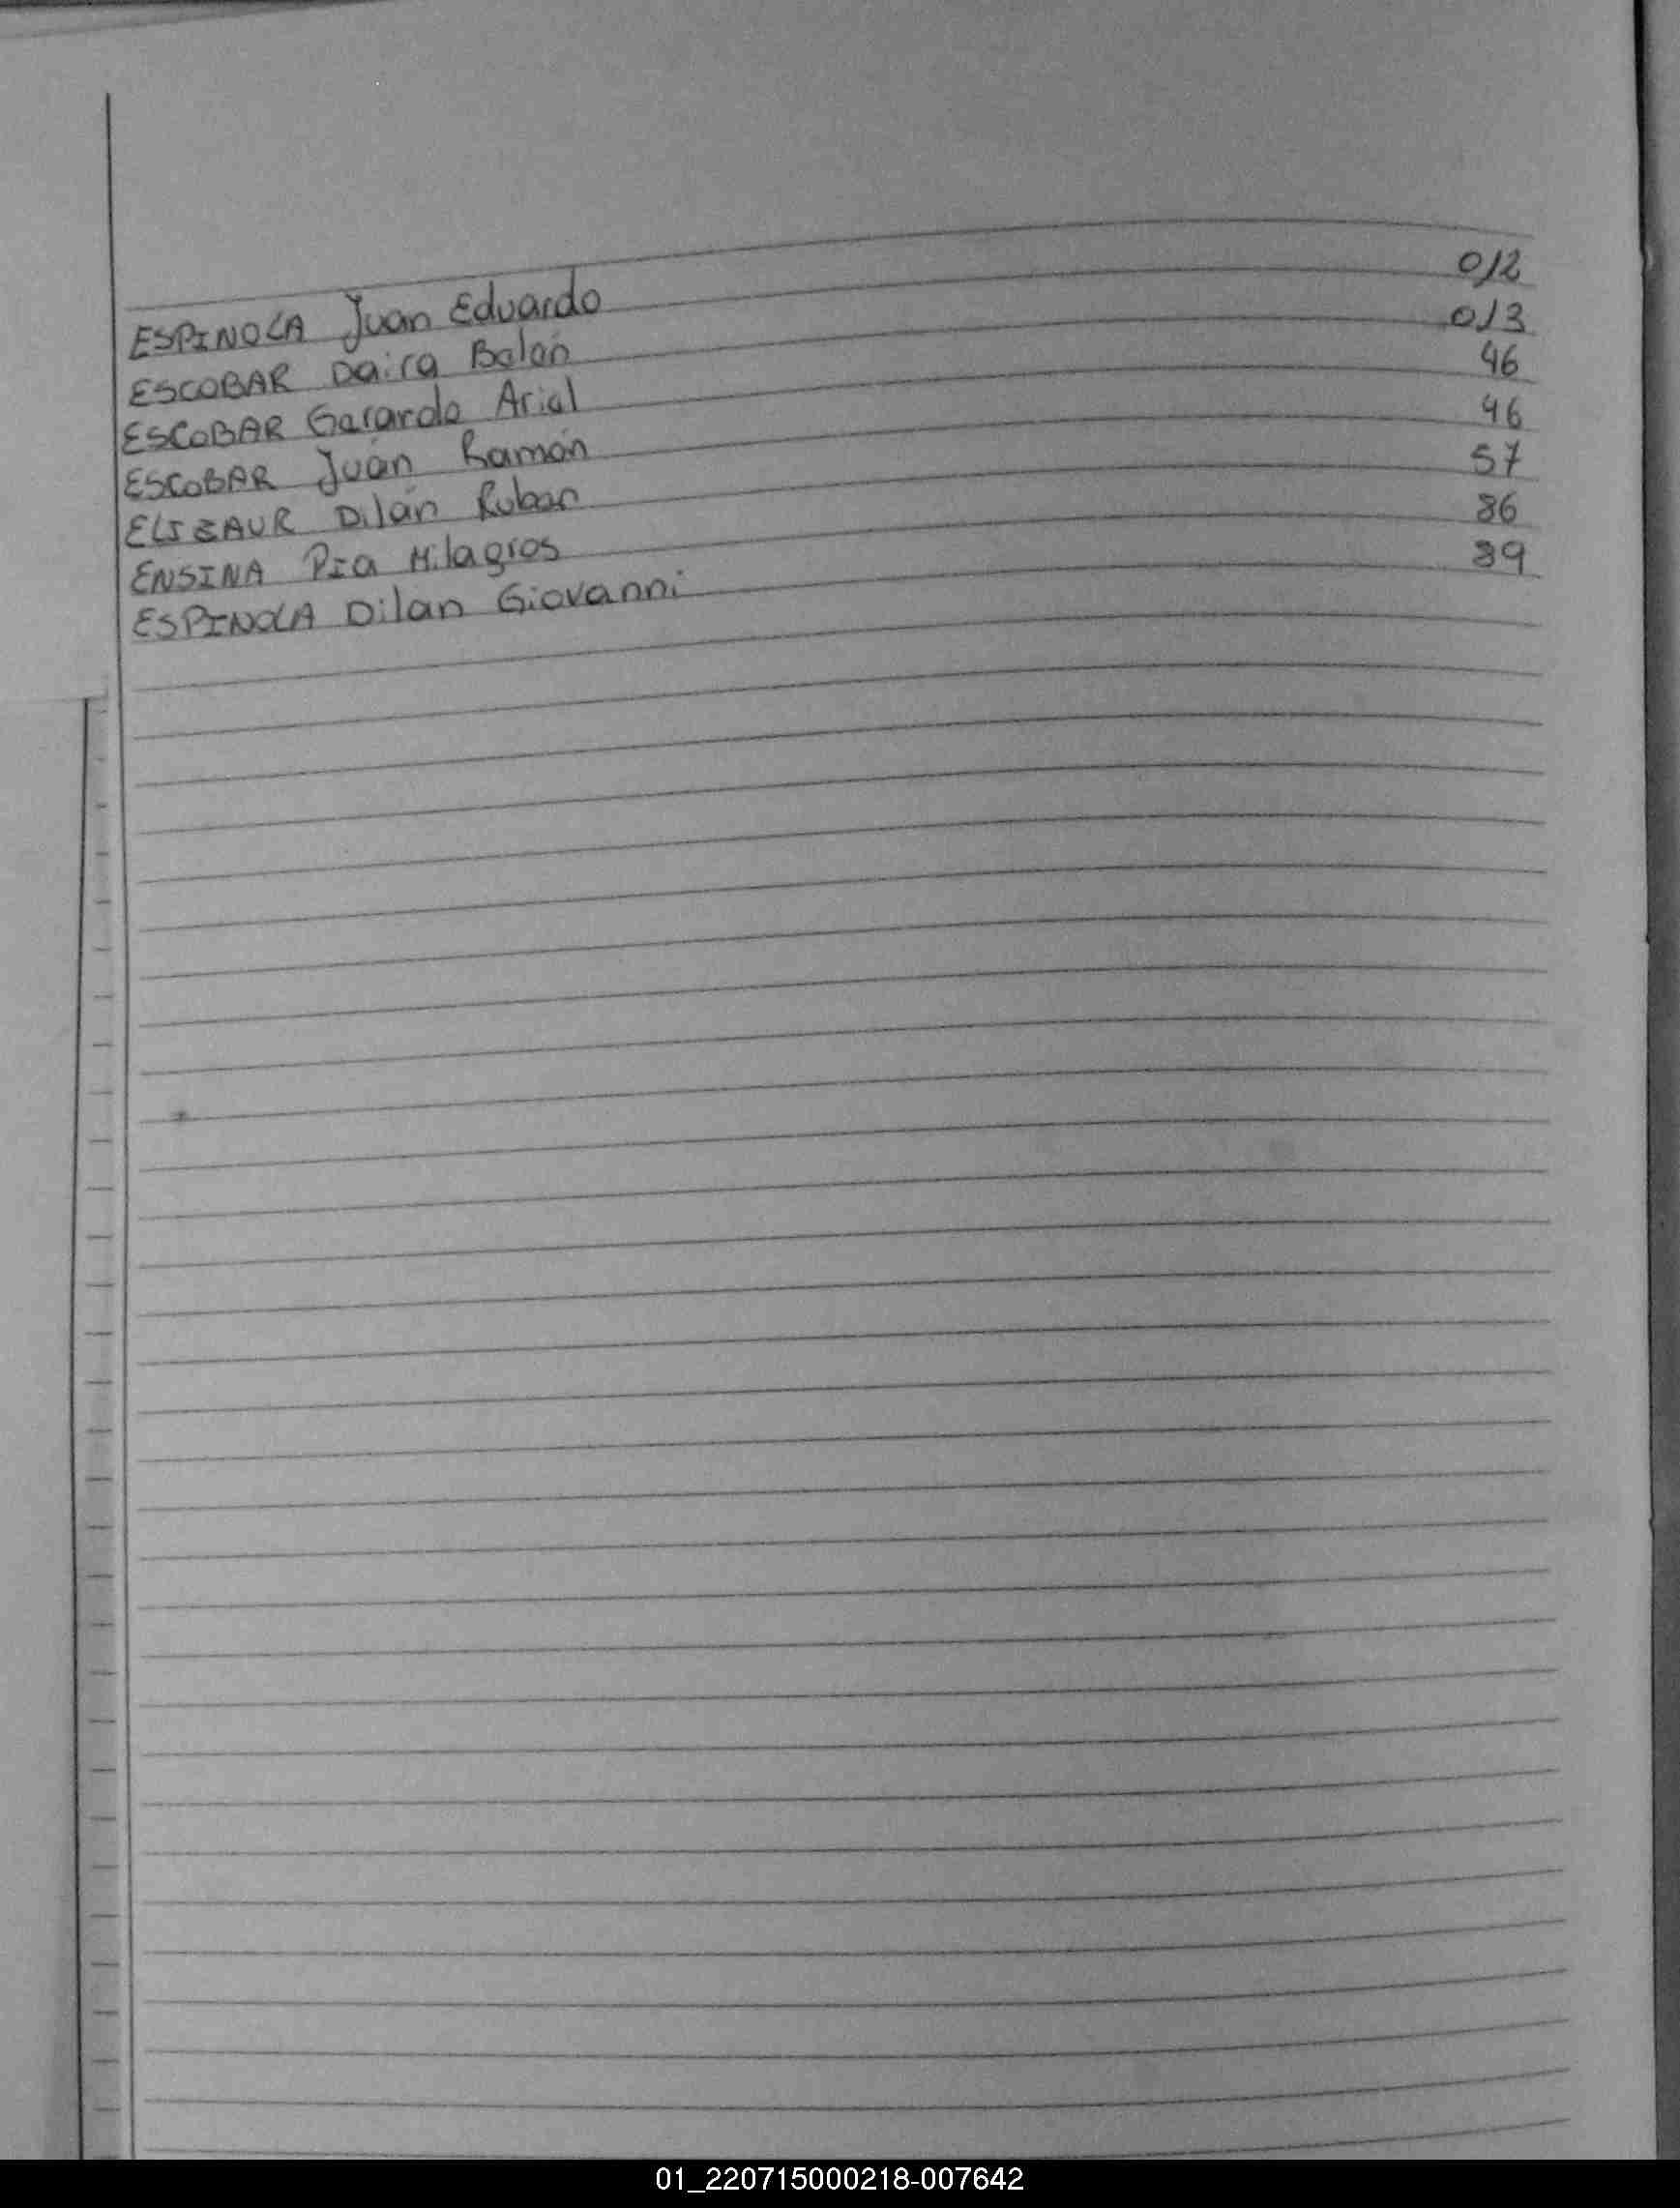 ESPINOLA Juan Eduardo 012
ESCOBAR Daira Belén 013
ESCOBAR Gerardo Ariel 46
ESCOBAR Juán Ramón 46
ELIZAUR Dilán Ruben 57
ENSINA Pia Milagros 86
ESPINOLA Dilan Giovanni 89
01_220715000218-007642